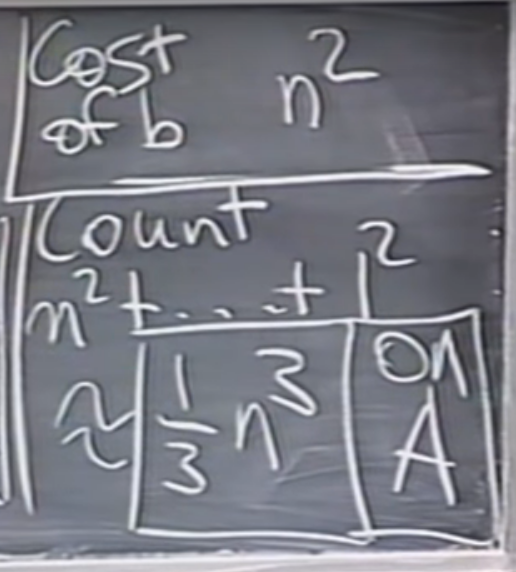 Cost
of b n²
Count
n²+...+1²
≈ 1/3 n³ on
A